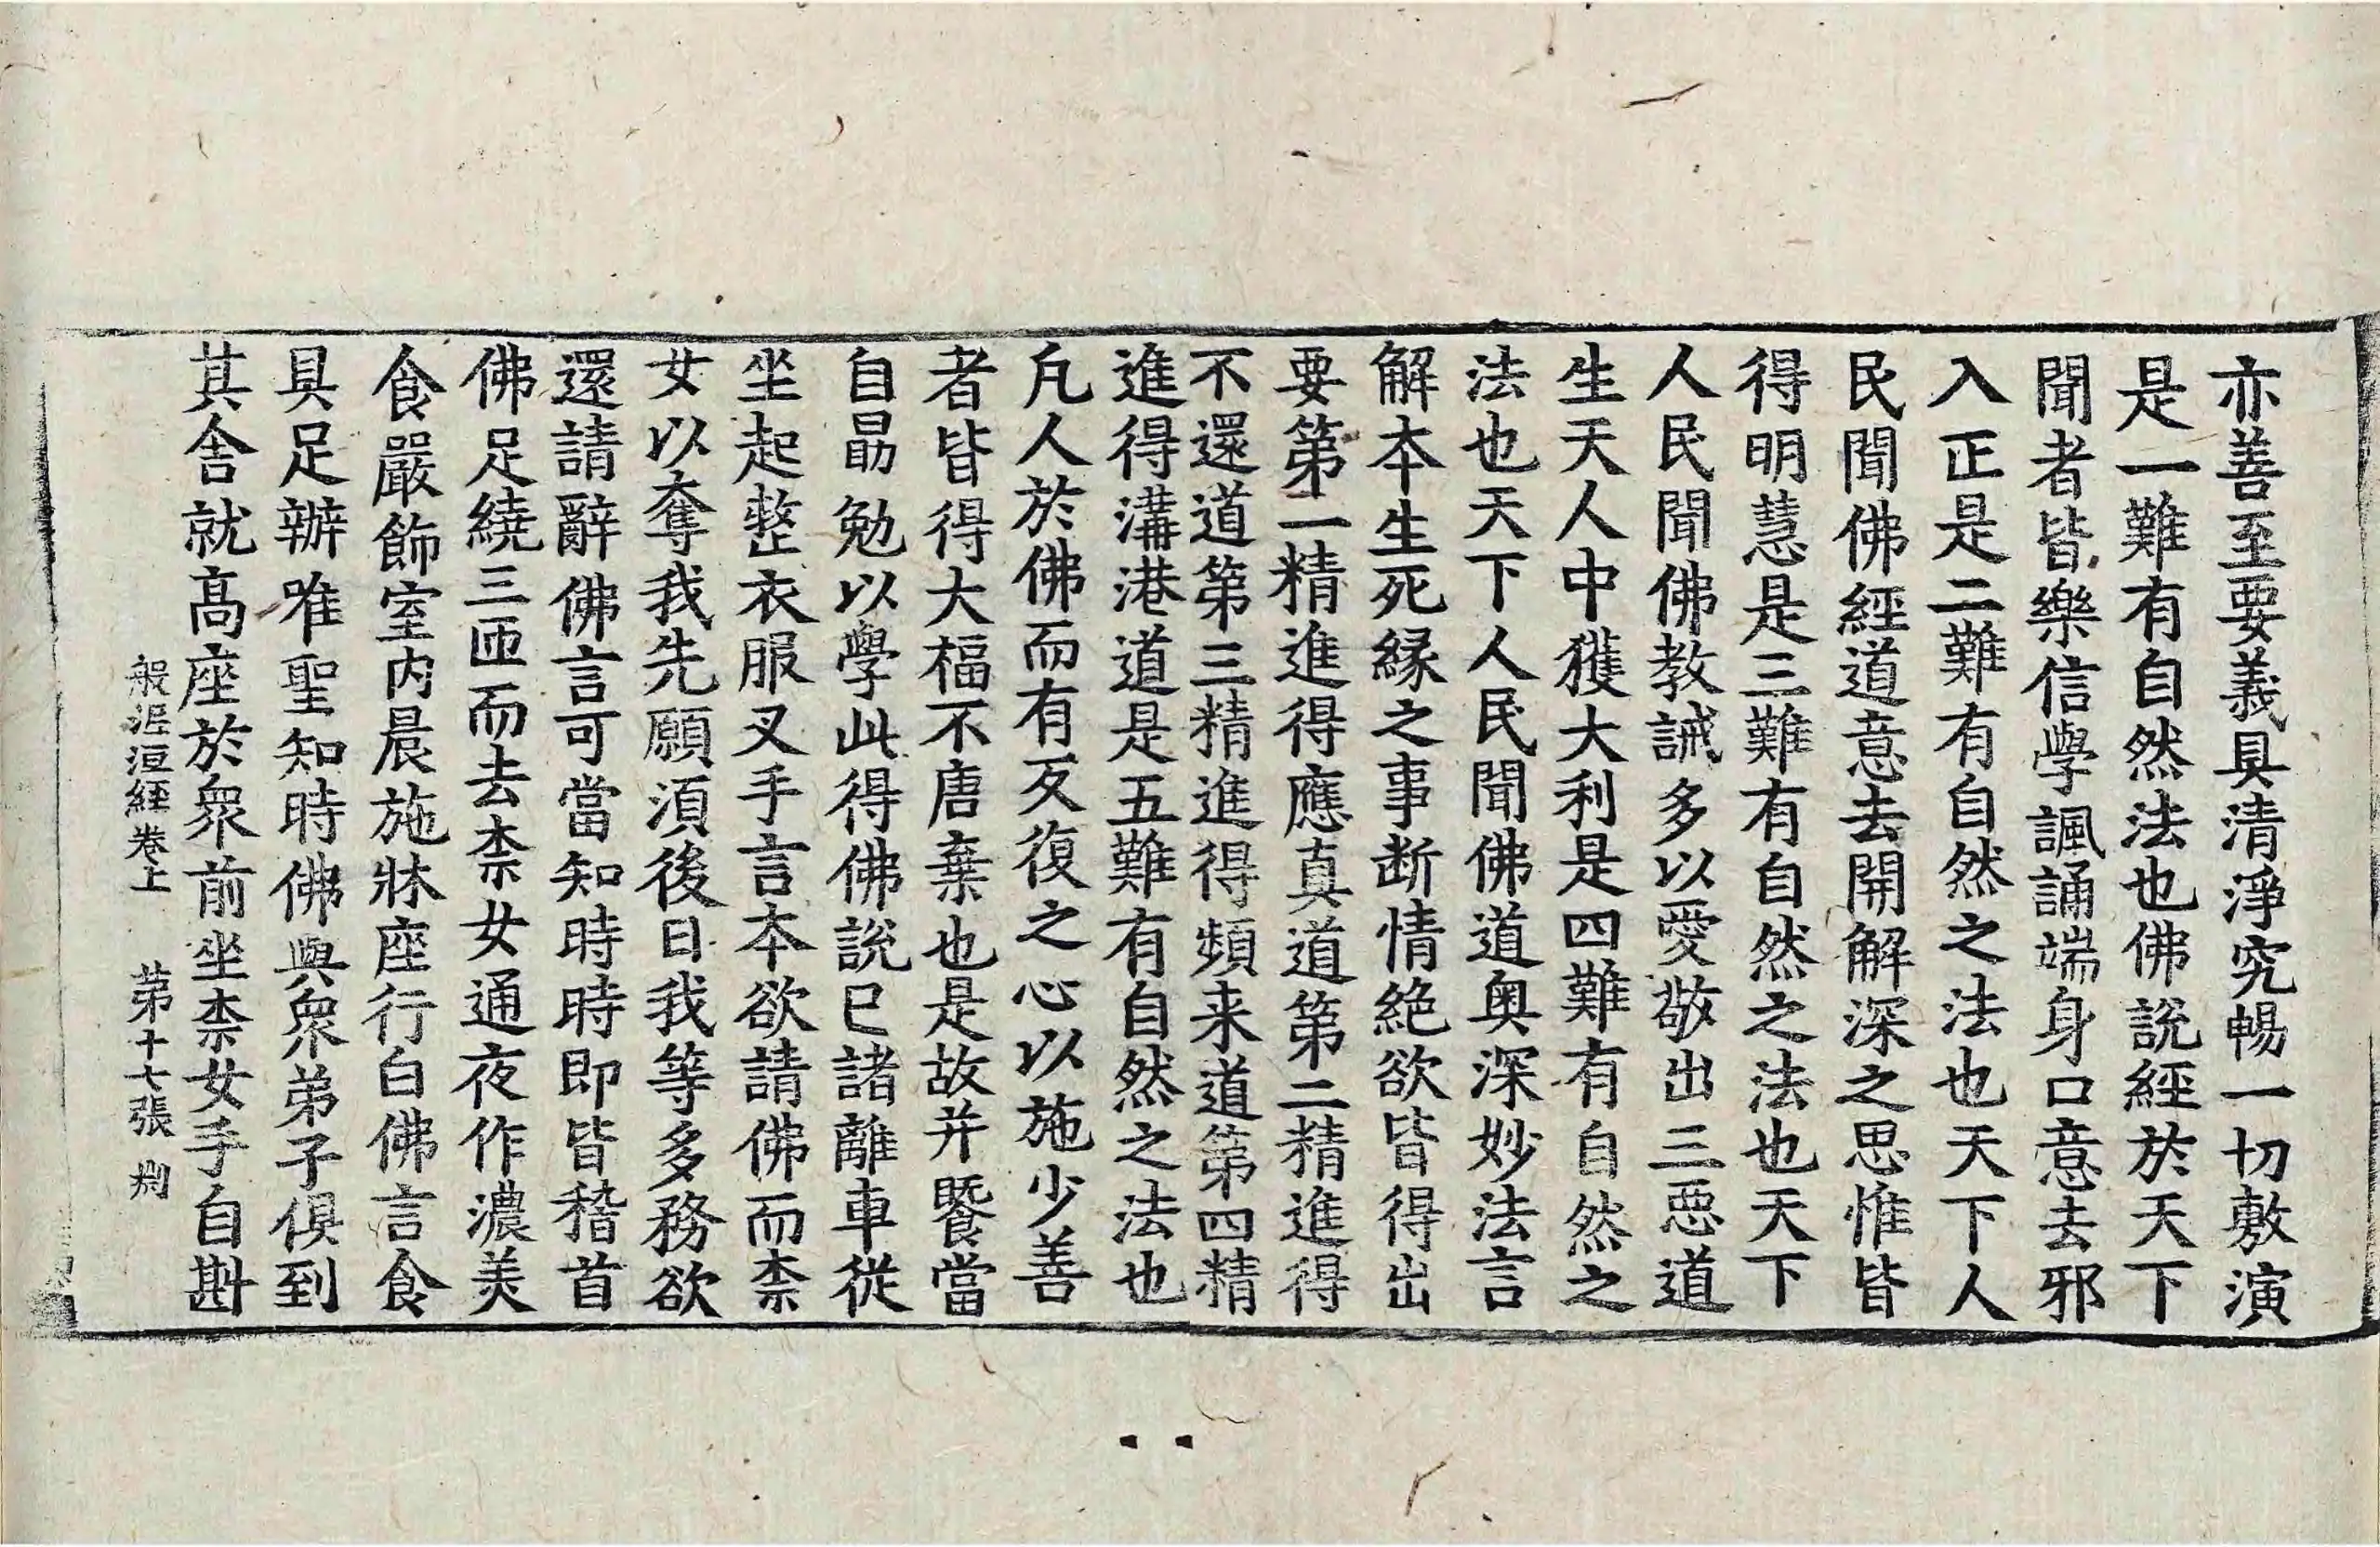 亦善至要義具清淨究暢一切敷演
是一難有自然法也佛說經於天下
聞者皆樂信學諷誦端身口意去邪
入正是二難有自然之法也天下人
民聞佛經道意去開解深之思惟皆
得明慧是三難有自然之法也天下
人民聞佛教誡多以愛敬出三惡道
生天人中獲大利是四難有自然之
法也天下人民聞佛道奧深妙法言
解本生死緣之事断情絕欲皆得出
要第一精進得應真道第二精進得
不還道第三精進得頻来道第四精
進得溝港道是五難有自然之法也
凡人於佛而有反復之心以施少善
者皆得大福不唐棄也是故并饗當
自勗勉以學此得佛說已諸離車從
坐起整衣服叉手言本欲請佛而柰
女以奪我先願須後日我等多務欲
還請辭佛言可當知時時即皆稽首
佛足繞三匝而去柰女通夜作濃美
食嚴飾室內晨施牀座行白佛言食
具足辦唯聖知時佛與眾弟子俱到
其舍就高座於眾前坐柰女手自斟
般泥洹經卷上 第十七張